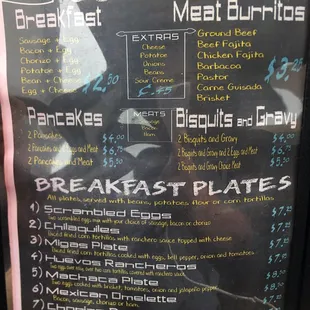 Breakfast
Sausage + Egg
Bacon + Egg
Chorizo + Egg
Potatoe + Egg
Bean + Cheese
Egg + Cheese
$2.50
EXTRAS
Cheese
Potatoe
Onions
Beans
Sour Creme
Meat Burritos
Ground Beef
Beef Fajita
Chicken Fajita
Barbacoa
Pastor
Carne Guisada
Brisket
Pancakes
2 Pancakes
$4.00
2 Pancakes and Eggs and Meat
$6.75
2 Pancakes and Meat
$5.50
MEATS
Chorizo
Bacon
Ham
Bisquits and Gravy
2 Bisquits and Gravy
$4.00
2 Bisquits and Gravy and 2 Eggs and Meat
$6.75
2 Bisquits and Gravy Choice Meat
$5.50
BREAKFAST PLATES
All plates, served with beans, potatoes, flour or corn tortillas
1) Scrambled Eggs
Two scrambled eggs mix with your choice of sausage, bacon or chorizo
2) Chilaquiles
Sliced fried corn tortillas with ranchero sauce topped with cheese
3) Migas Plate
Sliced fried corn tortillas cooked with eggs, bell pepper, onion and tomatoes
4) Huevos Rancheros
5) Machaca Plate
6) Mexican Omelette
Bacon, sausage, chorizo or ham